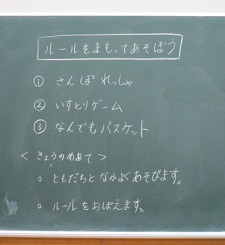 ルールをまもってあそぼう
① さんぽれっしゃ
② いすとりゲーム
③ なんでもバスケット
＜きょうのめあて＞
○ ともだちとなかよくあそびます。
○ ルールをおぼえます。